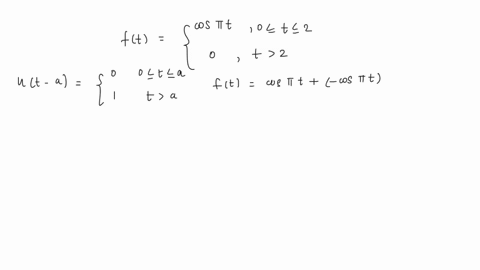 f(t) = { cos πt , 0 ≤ t ≤ 2
0 , t > 2
u(t - a) = { 0 0 ≤ t ≤ a
1 t > a
f(t) = cos πt + (-cos πt)